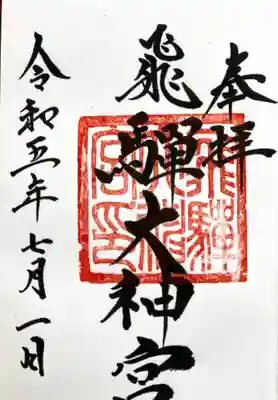 奉拝
飛騨大神宮
令和五年七月一日